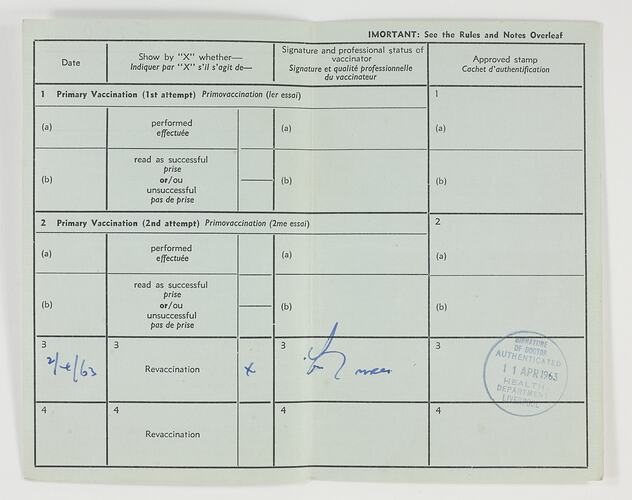 IMORTANT: See the Rules and Notes Overleaf
Date
Show by "X" whether—
Indiquer par "X" s'il s'agit de—
Signature and professional status of
vaccinator
Signature et qualité professionnelle
du vaccinateur
Approved stamp
Cachet d'authentification
1 Primary Vaccination (1st attempt) Primovaccination (1er essai)
1
(a)
performed
effectuée
(a)
(a)
(b)
read as successful
prise
or/ou
unsuccessful
pas de prise
(b)
(b)
2 Primary Vaccination (2nd attempt) Primovaccination (2me essai)
2
(a)
performed
effectuée
(a)
(a)
(b)
read as successful
prise
or/ou
unsuccessful
pas de prise
(b)
(b)
3
2/4/63
3
Revaccination
x
3
3
SIGNATURE
OF DOCTOR
AUTHENTICATED
11 APR 1963
HEALTH
DEPARTMENT
LIVERPOOL
4
4
Revaccination
4
4